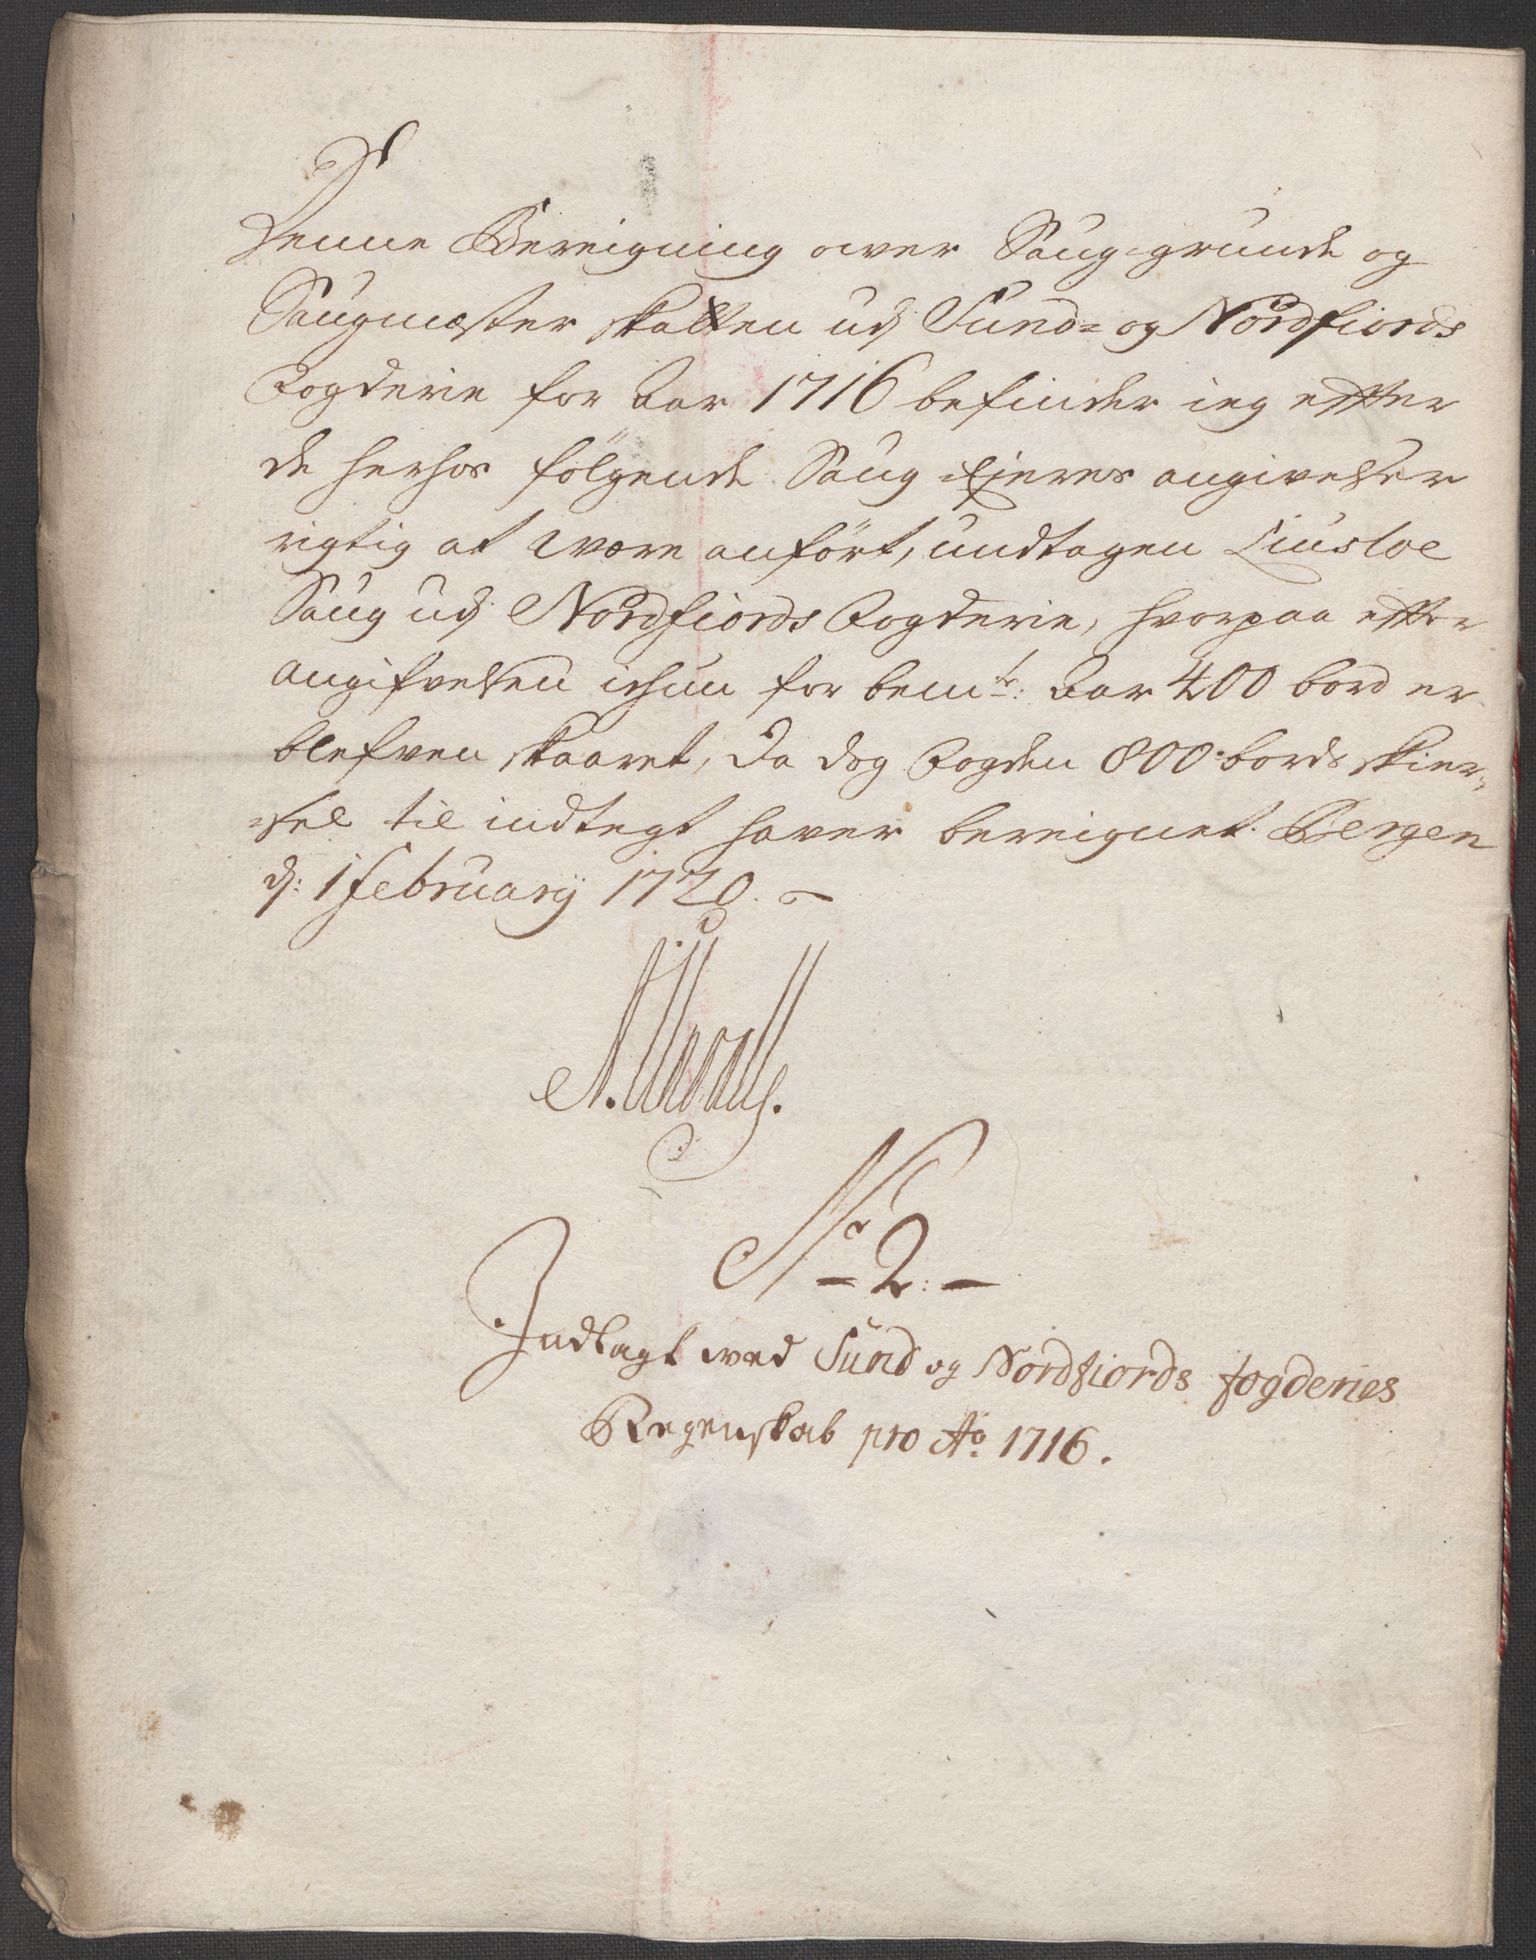 Denne Bereigning over Saug-grunde og
Saugmæster skatten udj Sund- og Nordfiords
Fogderie for Aar 1716 befinder ieg effter
de herhos fölgende Saug Ejeres angivelser
rigtig at være anfört, undtagen
Saug udj Nordfiords Fogderie, hvorpaa effter
angifvelsen ichun for bemte: Aar 400 bord er
blefven skaaret, da dog Fogden 800 bords skier-
-sel til indtegt haver bereignet. Bergen
d: 1 February 1720.
No 2.
Indlagt ved Sund og Nordfiords fogderies
Regenskab pro Ao 1716.